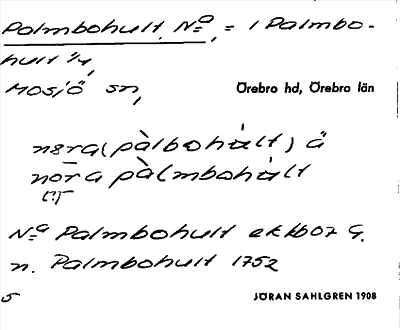 Palmbohult, Nᵒ, = 1 Palmbo-
hult 1/4,
Mosjö sn,
Örebro hd, Örebro län
nøra (pàlbohàlt) ä
nora pàlmbohàlt
(?)
Nᵒ Palmbohult ekbb07 G.
n. Palmbohult 1752
5
JÖRAN SAHLGREN 1908